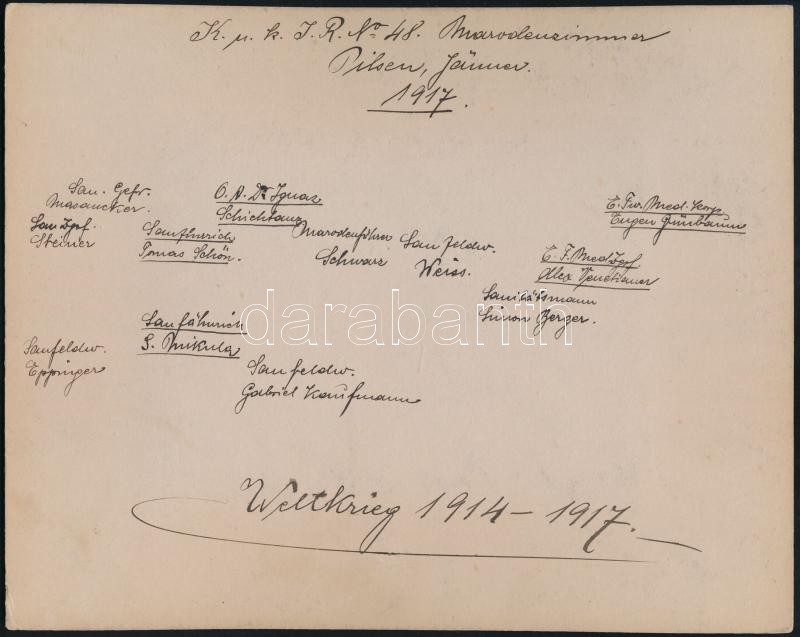 K. u. k. I. R. No 48. Marodenzimmer
Pilsen, Jänner.
1917.
San. Gefr.
Masancker.
San Zgf.
Steiner
O. A. Dr Ignaz
Schichtanz
Sanfhnrich
Tomas Schön.
Marodenführer
Schwarz
San feldw.
Weiss.
E. Fw. Med. Korp.
Eugen Grünbaum
E. F. Med Zgf
Alex Venetianer
Sanitätsmann
Simon Berger.
Sanfähnrich
S. Mikula
Sanfeldw.
Eppinger
Sanfeldw.
Gabriel Kaufmann
darabanth
Weltkrieg 1914 – 1917.